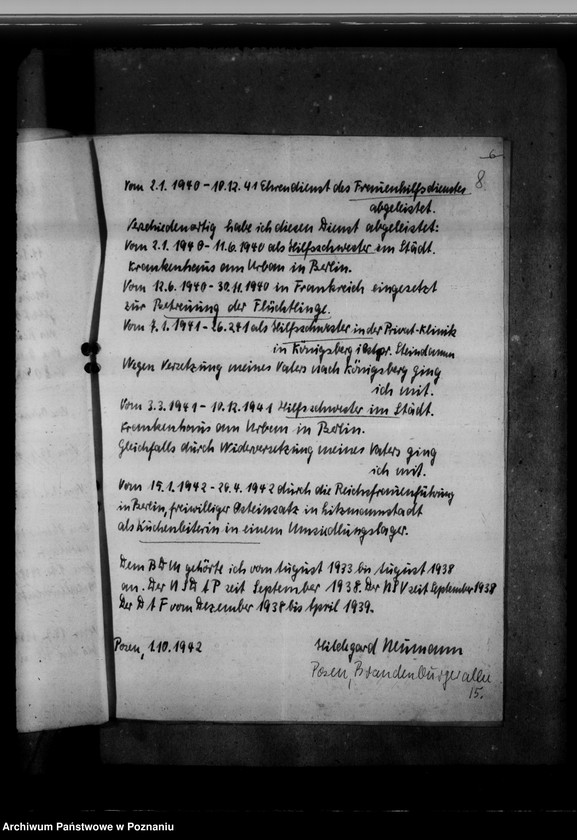 6
8
Vom 2.1.1940 - 10.12.41 Ehrendienst des Frauenhilfsdienstes
abgeleistet.
Verschiedenartig habe ich diesen Dienst abgeleistet:
Vom 2.1.1940 - 11.6.1940 als Hilfsschwester im Städt.
Krankenhaus am Urban in Berlin.
Vom 12.6.1940 - 30.11.1940 in Frankreich eingesetzt
zur Betreuung der Flüchtlinge.
Vom 7.1.1941 - 26.2.41 als Hilfsschwester in der Privat-Klinik
in Königsberg i Ostpr. Steindamm
Wegen Versetzung meines Vaters nach Königsberg ging
ich mit.
Vom 3.3.1941 - 10.12.1941 Hilfsschwester im Städt.
Krankenhaus am Urban in Berlin.
Gleichfalls durch Wiederversetzung meines Vaters ging
ich mit.
Vom 15.1.1942 - 26.4.1942 durch die Reichsfrauenführung
in Berlin, freiwilliger Osteinsatz in Litzmannstadt
als Küchenleiterin in einem Umsiedlungslager.
Dem BDM gehörte ich vom August 1933 bis August 1938
an. Der NSDAP seit September 1938. Der NSV seit September 1938
Der DAF vom Dezember 1938 bis April 1939.
Posen, 1.10.1942
Hildegard Neumann
Posen, Brandenburgerallee
15.
Archiwum Państwowe w Poznaniu